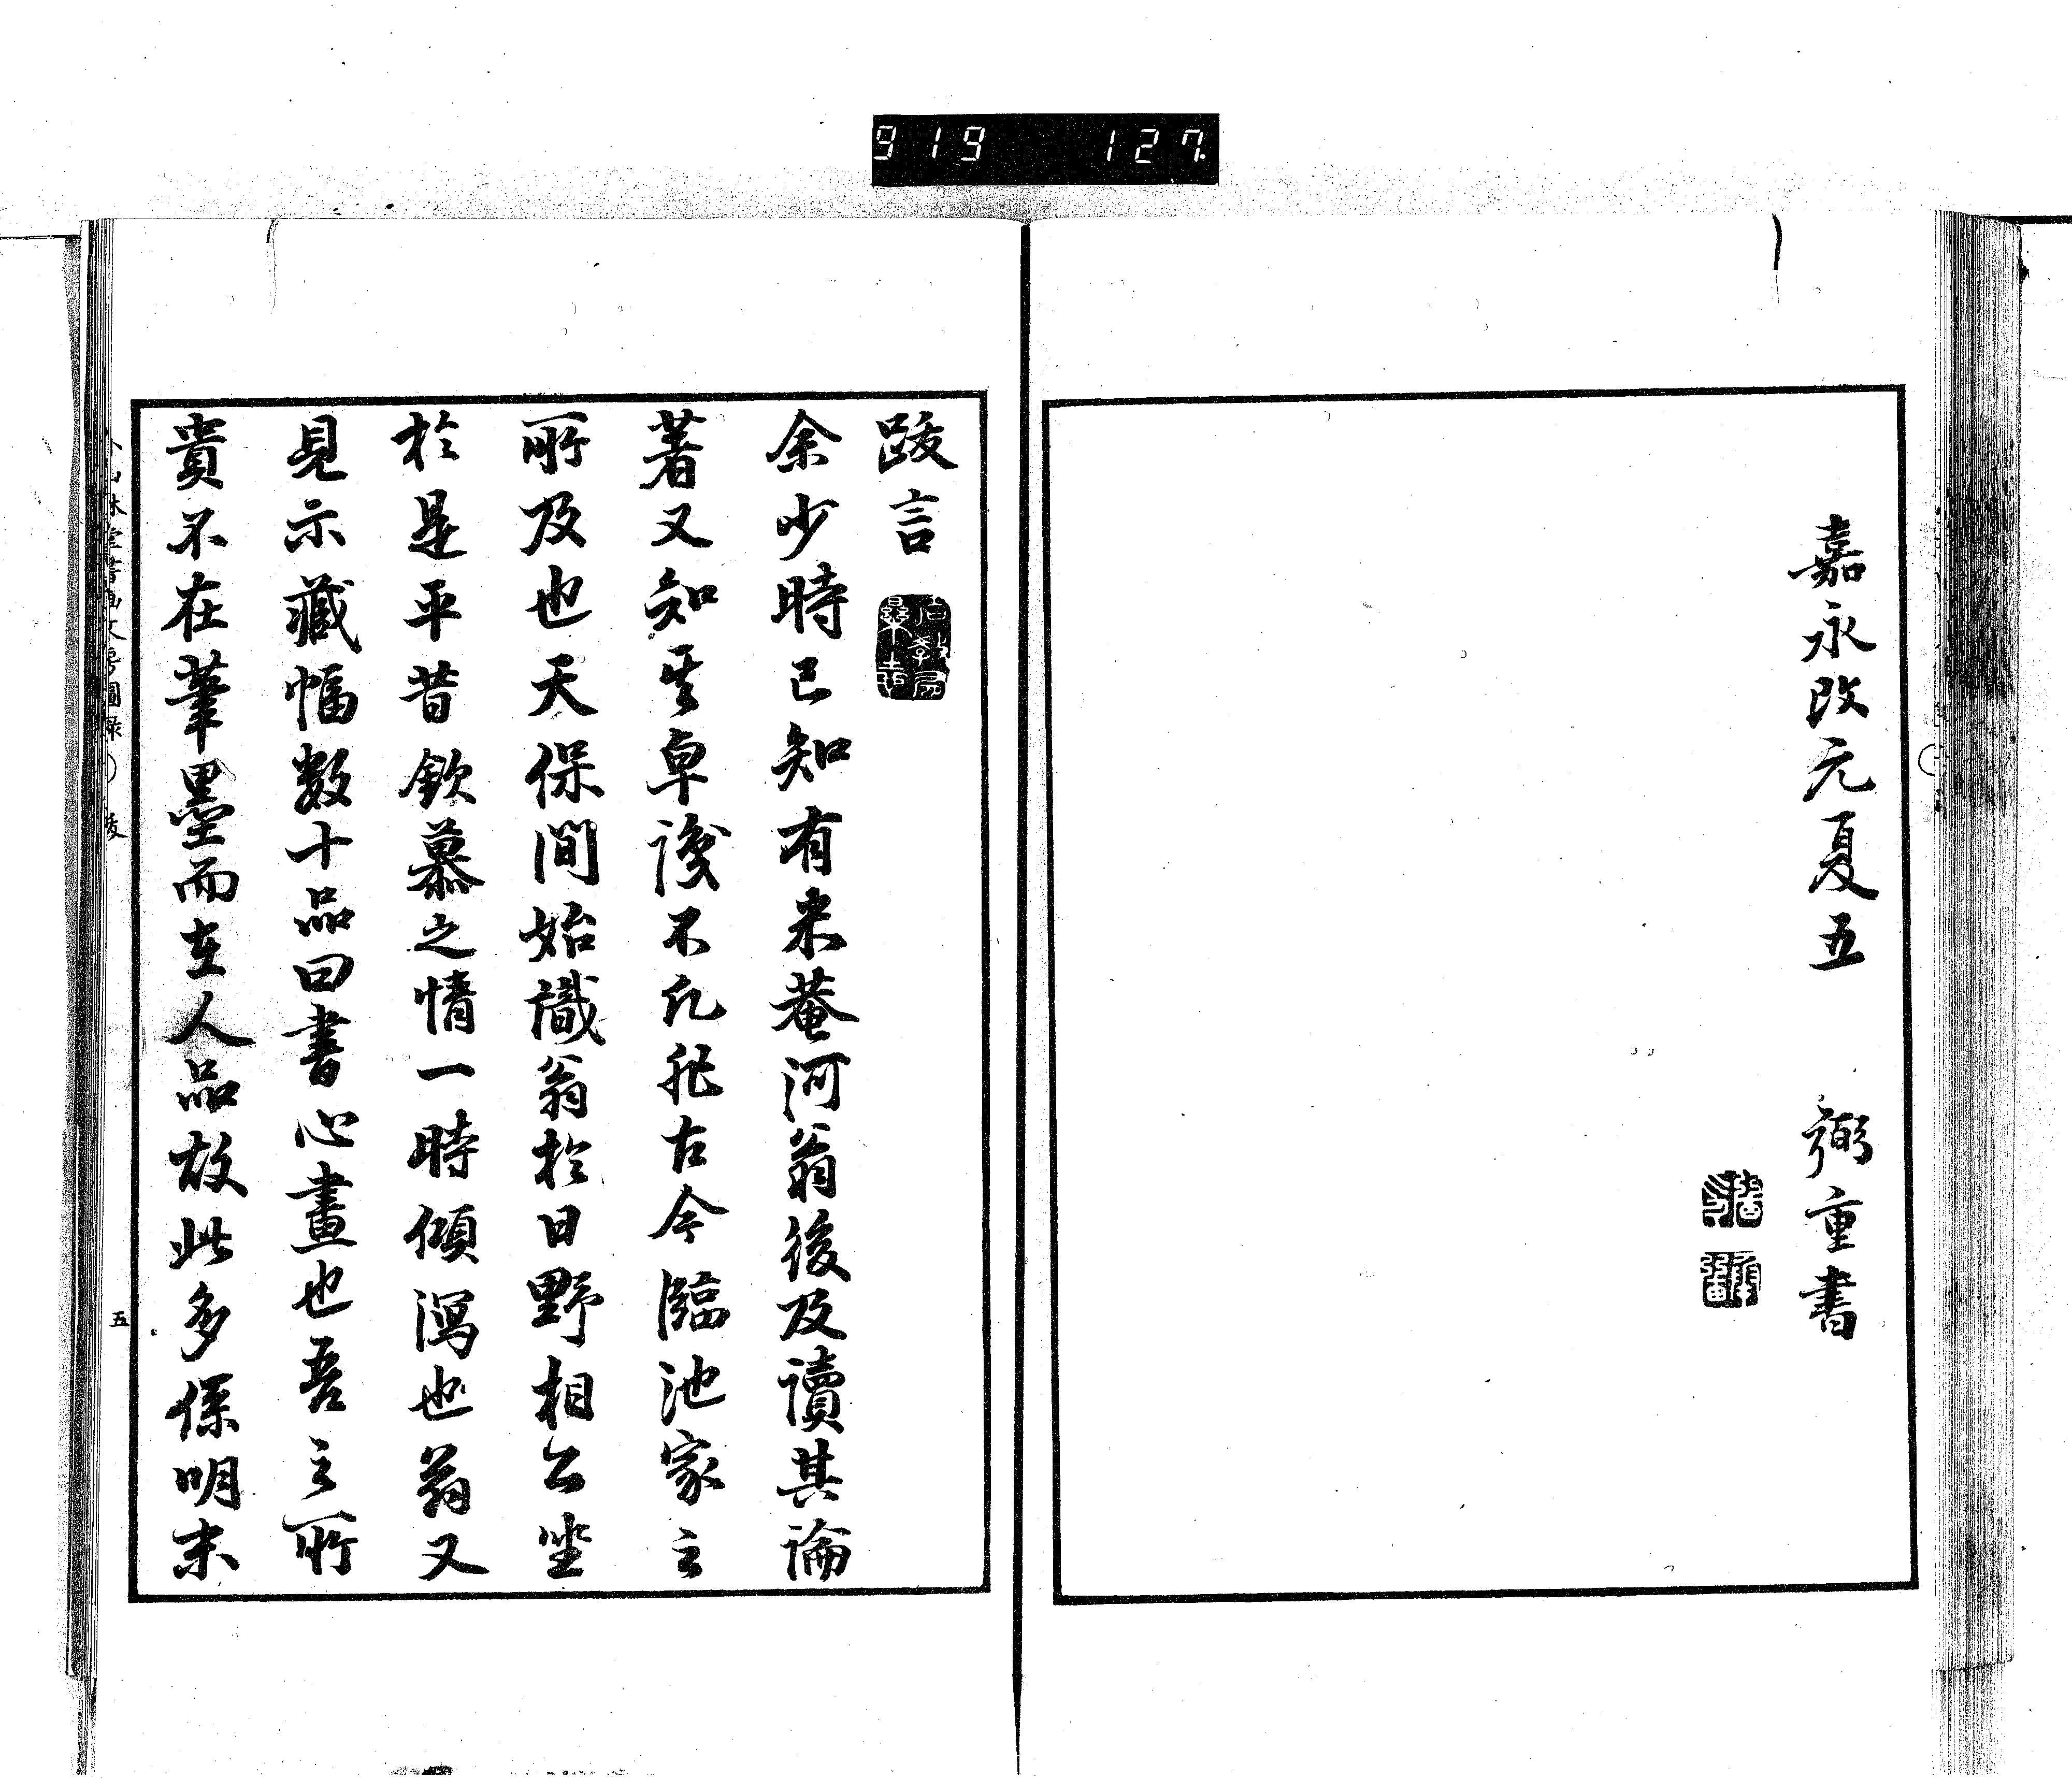 919 127
嘉永改元夏五 弼重書
跋言
余少時已知有米菴河翁後及讀其論
著又知其卓識不凡非古今臨池家之
所及也天保間始識翁於日野相公坐
於是平昔欽慕之情一時傾瀉也翁又
見示藏幅數十品曰書心畫也吾之所
貴不在筆墨而在人品故此多係明末
小山林堂書画文房圖録
五